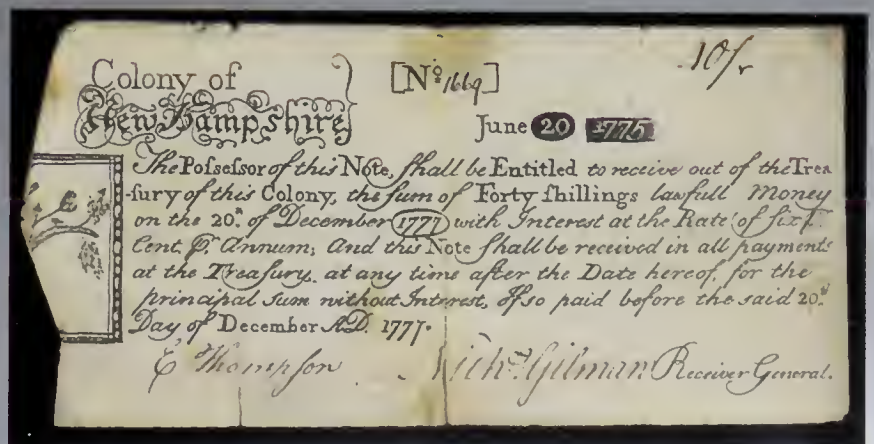 10/
Colony of [Nº 1669]
New Hampshire
June 20 1775
The Poſseſsor of this Note, ſhall be Entitled to receive out of the Trea
-ſury of this Colony, the ſum of Forty ſhillings lawfull Money
on the 20.th of December 1777 with Intereſt at the Rate of ſix Pr.
Cent Pr. Annum; And this Note ſhall be received in all payments
at the Treaſury, at any time after the Date hereof, for the
principal ſum without Intereſt, If ſo paid before the said 20.th
Day of December A.D. 1777.
E Thompson Nichs. Gilman Receiver General.